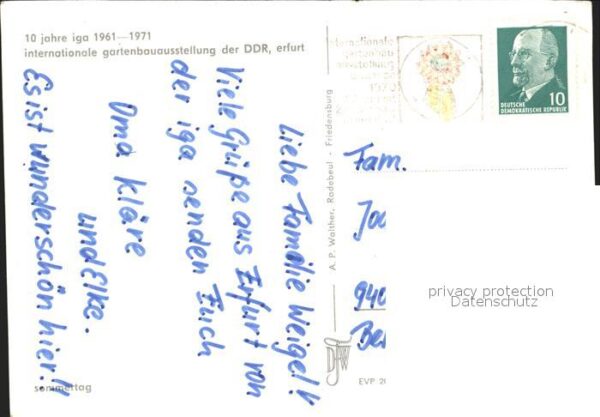 10 jahre iga 1961—1971
internationale gartenbauausstellung der DDR, erfurt
Liebe Familie Weigel!
Viele Grüße aus Erfurt von
der iga senden Euch
Oma Kläre
und Elke.
Es ist wunderschön hier!!
sommertag
A. P. Walther, Radebeul - Friedensburg
DEUTSCHE
DEMOKRATISCHE REPUBLIK
10
Fam.
940
privacy protection
Datenschutz
EVP 20